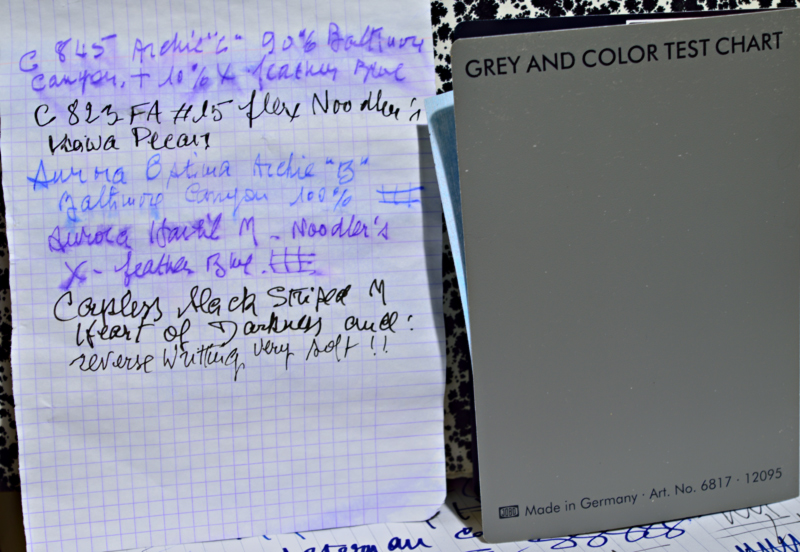 C 845 Archie "C" 90% Baltimore
Canyon, + 10% X-feather Blue
C 823 FA #15 flex Noodler's
Kiowa Pecan
Aurora Optima Archie "B"
Baltimore Canyon 100%
Aurora Hastil M - Noodler's
X-feather Blue.
Capless black Striped M
Heart of Darkness and:
reverse writing very soft !!
GREY AND COLOR TEST CHART
Made in Germany · Art. No. 6817 · 12095